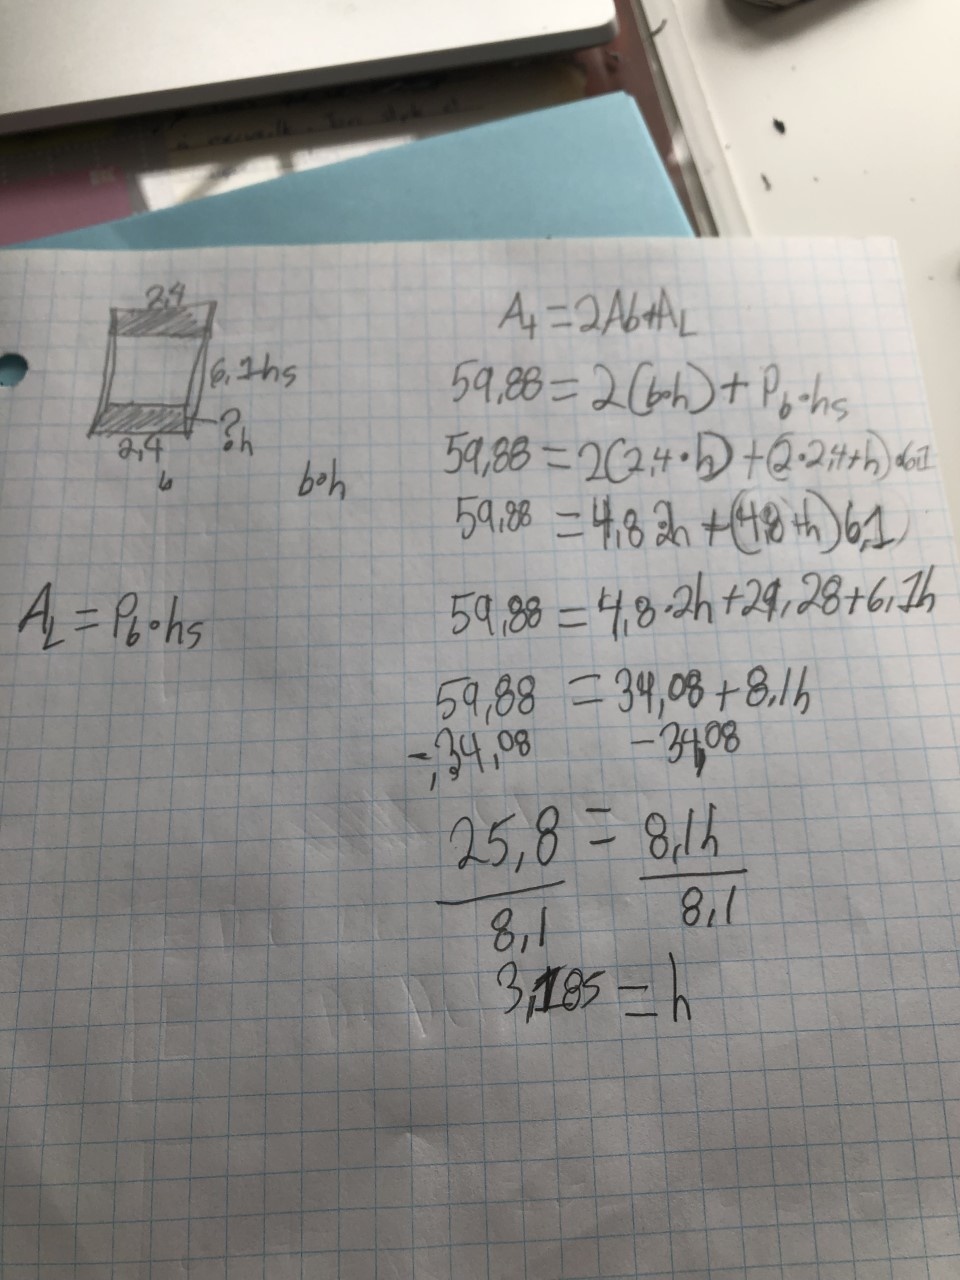 2,4
6,1hs
?h
2,4
b
b•h
A_L = P_b•hs
A_t = 2Ab+A_L
59,88 = 2(b•h) + P_b•hs
59,88 = 2(2,4•h) + (2•2,4+h)•6,1
59,88 = 4,8 2h + (4,8+h)6,1
59,88 = 4,8•2h+29,28+6,1h
59,88 = 34,08 + 8,1h
-34,08 -34,08
25,8 = 8,1h
8,1 8,1
3,185 = h